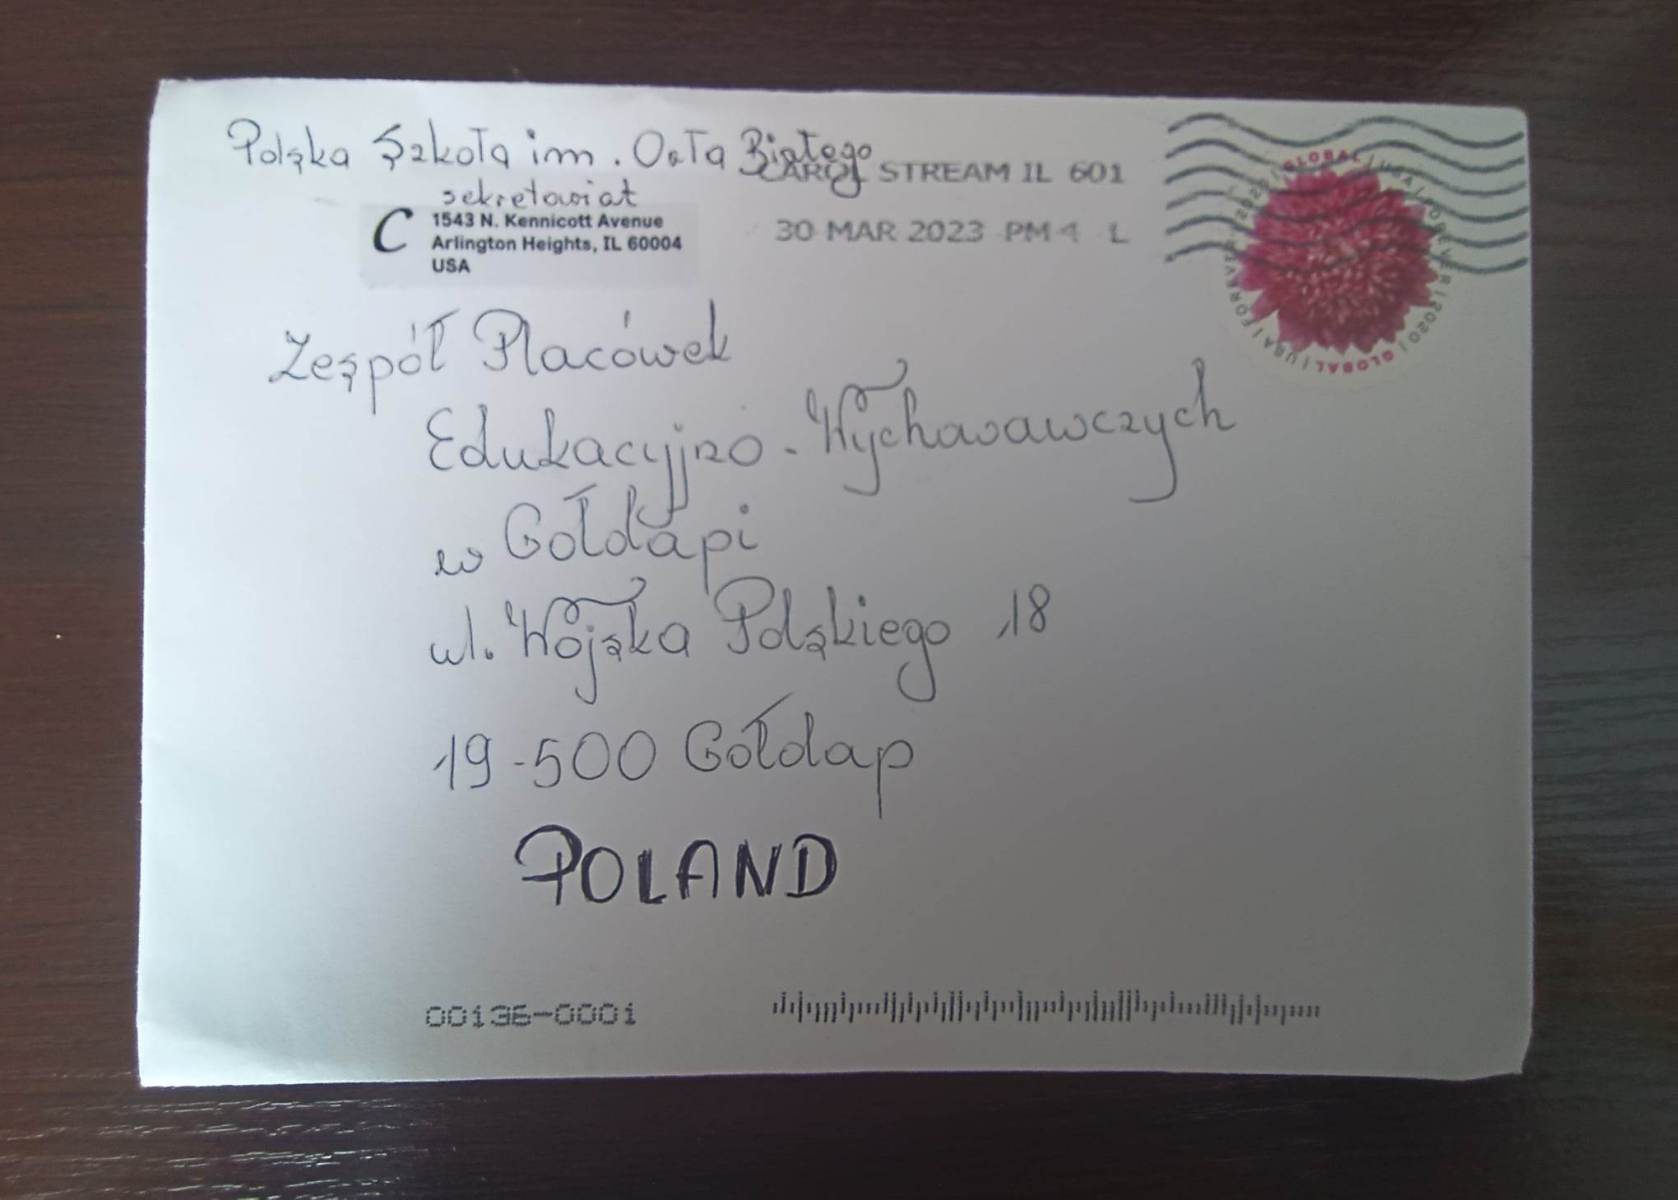 Polska Szkoła im. Orła Białego
sekretariat
C
1543 N. Kennicott Avenue
Arlington Heights, IL 60004
USA
CAROL STREAM IL 601
30 MAR 2023 PM 4 L
GLOBAL | USA | FOREVER | 2020 | GLOBAL | USA | FOREVER | 2020
Zespół Placówek
Edukacyjno-Wychowawczych
w Gołdapi
ul. Wojska Polskiego 18
19-500 Gołdap
POLAND
00136-0001